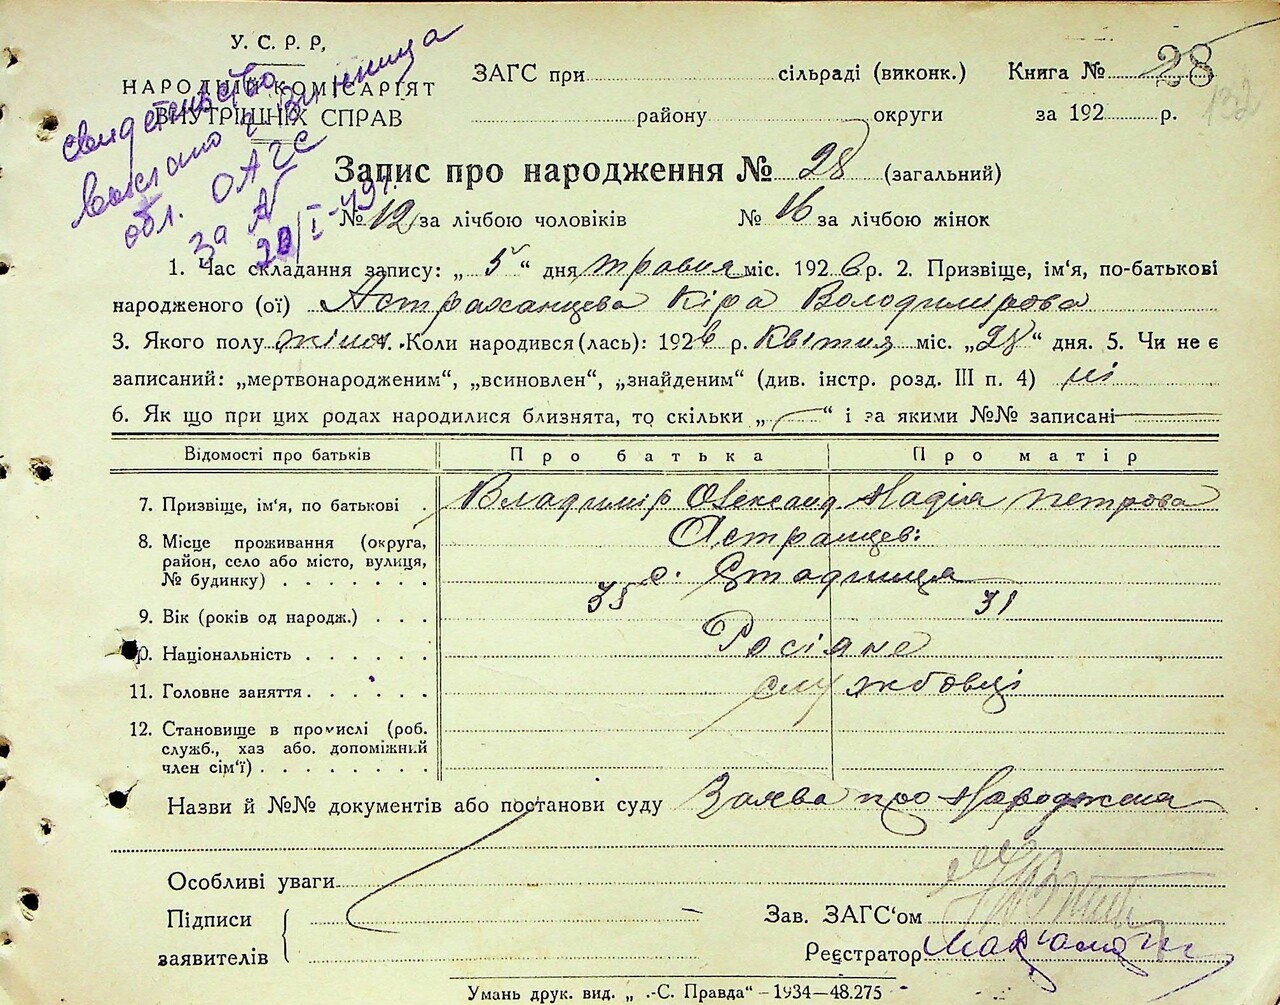 У. С. Р. Р,
НАРОДНІЙ КОМІСАРІЯТ
ВНУТРІШНІХ СПРАВ
свидетельство
г Винница
обл. ОАГС
за А
20/I-49г.
ЗАГС при сільраді (виконк.) Книга № 28
району округи за 192 р.
132
Запис про народження № 28 (загальний)
№ 12 за лічбою чоловіків № 16 за лічбою жінок
1. Час складання запису: „ 5 “ дня травня міс. 1926 р. 2. Призвіще, ім'я, по-батькові
народженого (ої) Астраханцева Кіра Володимірова
3. Якого полу жіноч. Коли народився (лась): 1926 р. Квітня міс. „28“ дня. 5. Чи не є
записаний: „мертвонародженим“, „всиновлен“, „знайденим“ (див. інстр. розд. III п. 4) ні
6. Як що при цих родах народилися близнята, то скільки „ “ і за якими №№ записані
Відомості про батьків Про батька Про матір
7. Призвіще, ім'я, по батькові . Владимір Олександ Надія Петрова
8. Місце проживання (округа,
район, село або місто, вулиця,
№ будинку) . . . . . . .
с. Стадниця
9. Вік (років од народж.) . . . 38 31
10. Національність . . . . . . Росіяне
11. Головне заняття . . . . . . службовці
12. Становище в промислі (роб.
служб., хаз або. допоміжний
член сім'ї) . . . . . . . .
Назви й №№ документів або постанови суду Заява про народження
Особливі уваги
Підписи
заявителів
Зав. ЗАГС'ом
Реєстратор
Умань друк. вид. „ .-С. Правда“ – 1934—48.275